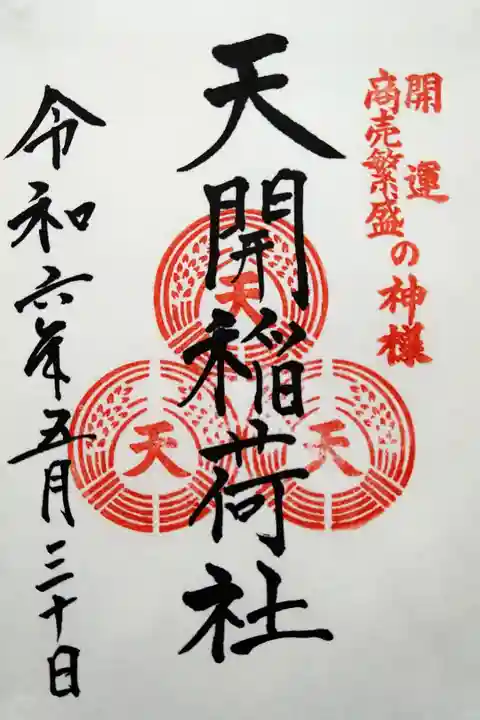 開運
商売繁盛の神様
天開稲荷社
天
天
天
令和六年五月三十日